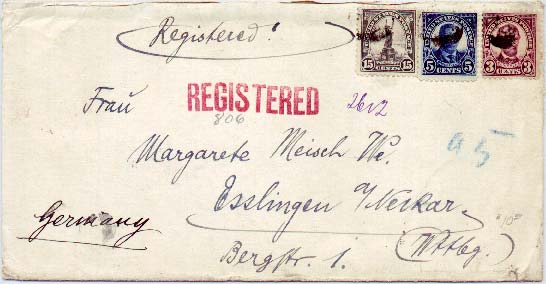 Registered!
15 CENTS 15
5 CENTS 5
3 CENTS 3
REGISTERED
806
Frau
Margarete Meisch We.
Esslingen a/Neckar.
Germany
(Wttbg.)
Bergstr. 1.